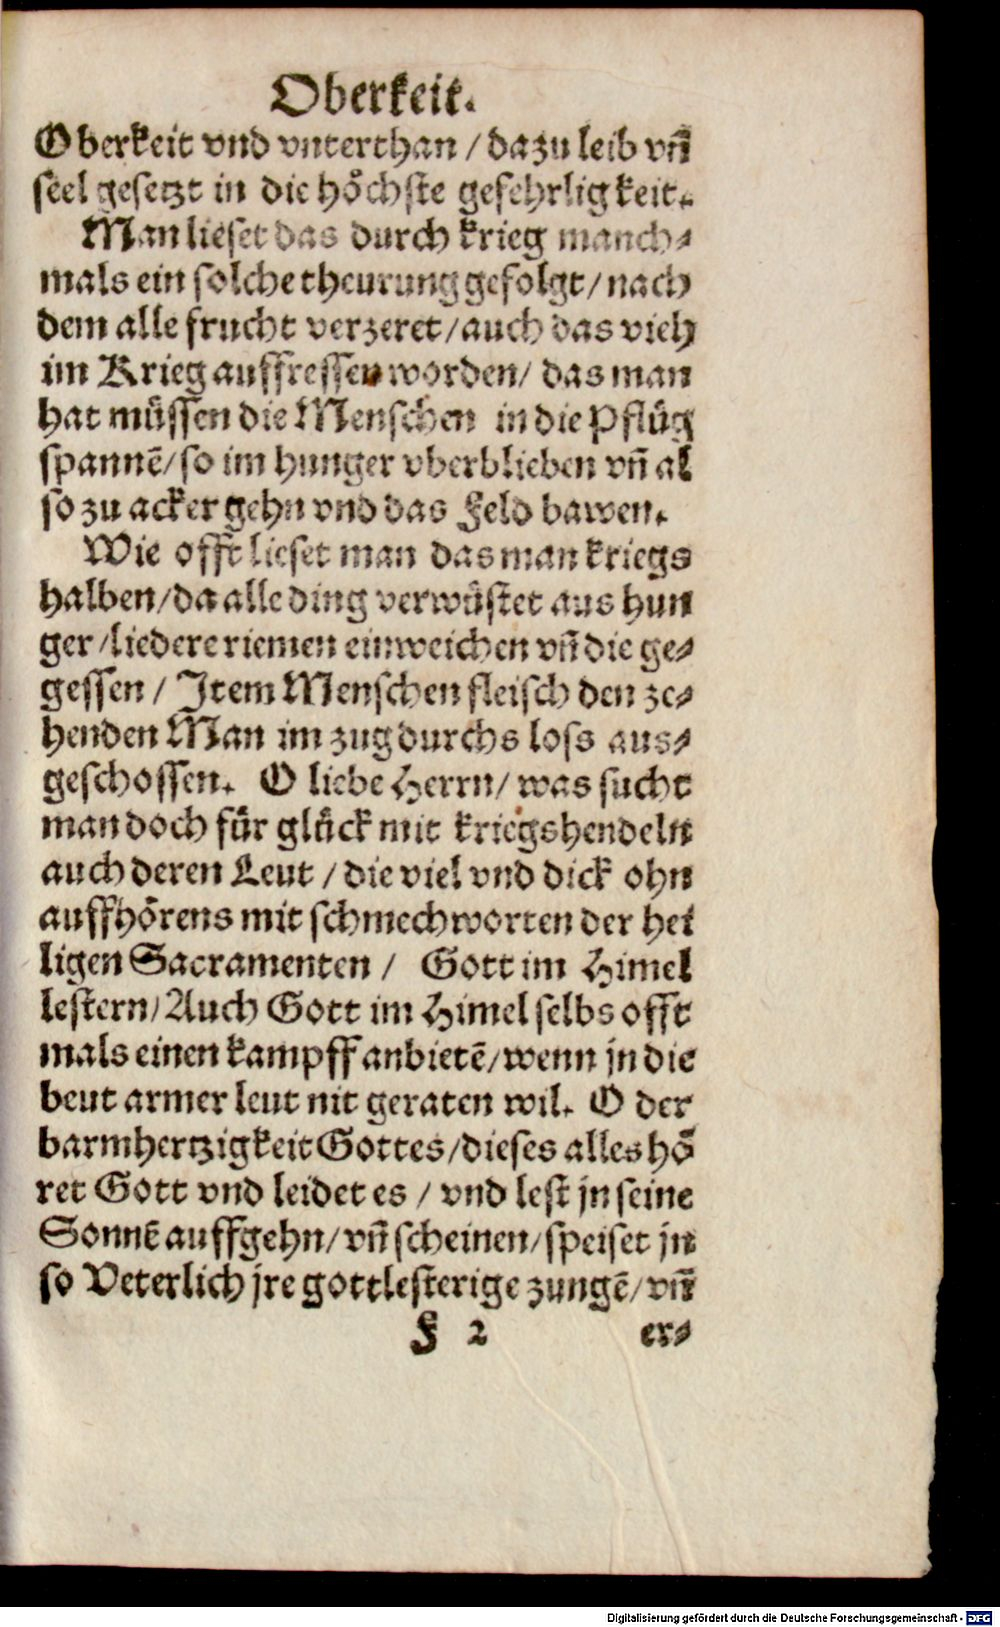 Oberkeit.
Oberkeit vnd vnterthan / dazu leib vñ
seel gesetzt in die höchste gefehrligkeit.
Man lieset das durch krieg manch-
mals ein solche theurung gefolgt / nach
dem alle frucht verzeret / auch das vieh
im Krieg auffressen worden / das man
hat müssen die Menschen in die Pflüg
spannē / so im hunger vberblieben vñ al
so zu acker gehn vnd das Feld bawen.
Wie offt lieset man das man kriegs
halben / da alle ding verwüstet aus hun
ger / liedere riemen einweichen vñ die ge-
gessen / Item Menschen fleisch den ze-
henden Man im zug durchs loss aus-
geschossen. O liebe Herrn / was sucht
man doch für glück mit kriegshendeln
auch deren Leut / die viel vnd dick ohn
auffhörens mit schmechworten der hei
ligen Sacramenten / Gott im Himel
lestern / Auch Gott im Himel selbs offt
mals einen kampff anbietē / wenn jn die
beut armer leut nit geraten wil. O der
barmhertzigkeit Gottes / dieses alles hö
ret Gott vnd leidet es / vnd lest jn seine
Sonnē auffgehn / vñ scheinen / speiset jn
so Veterlich jre gottlesterige zungē / vñ
F 2 er-
Digitalisierung gefördert durch die Deutsche Forschungsgemeinschaft - DFG